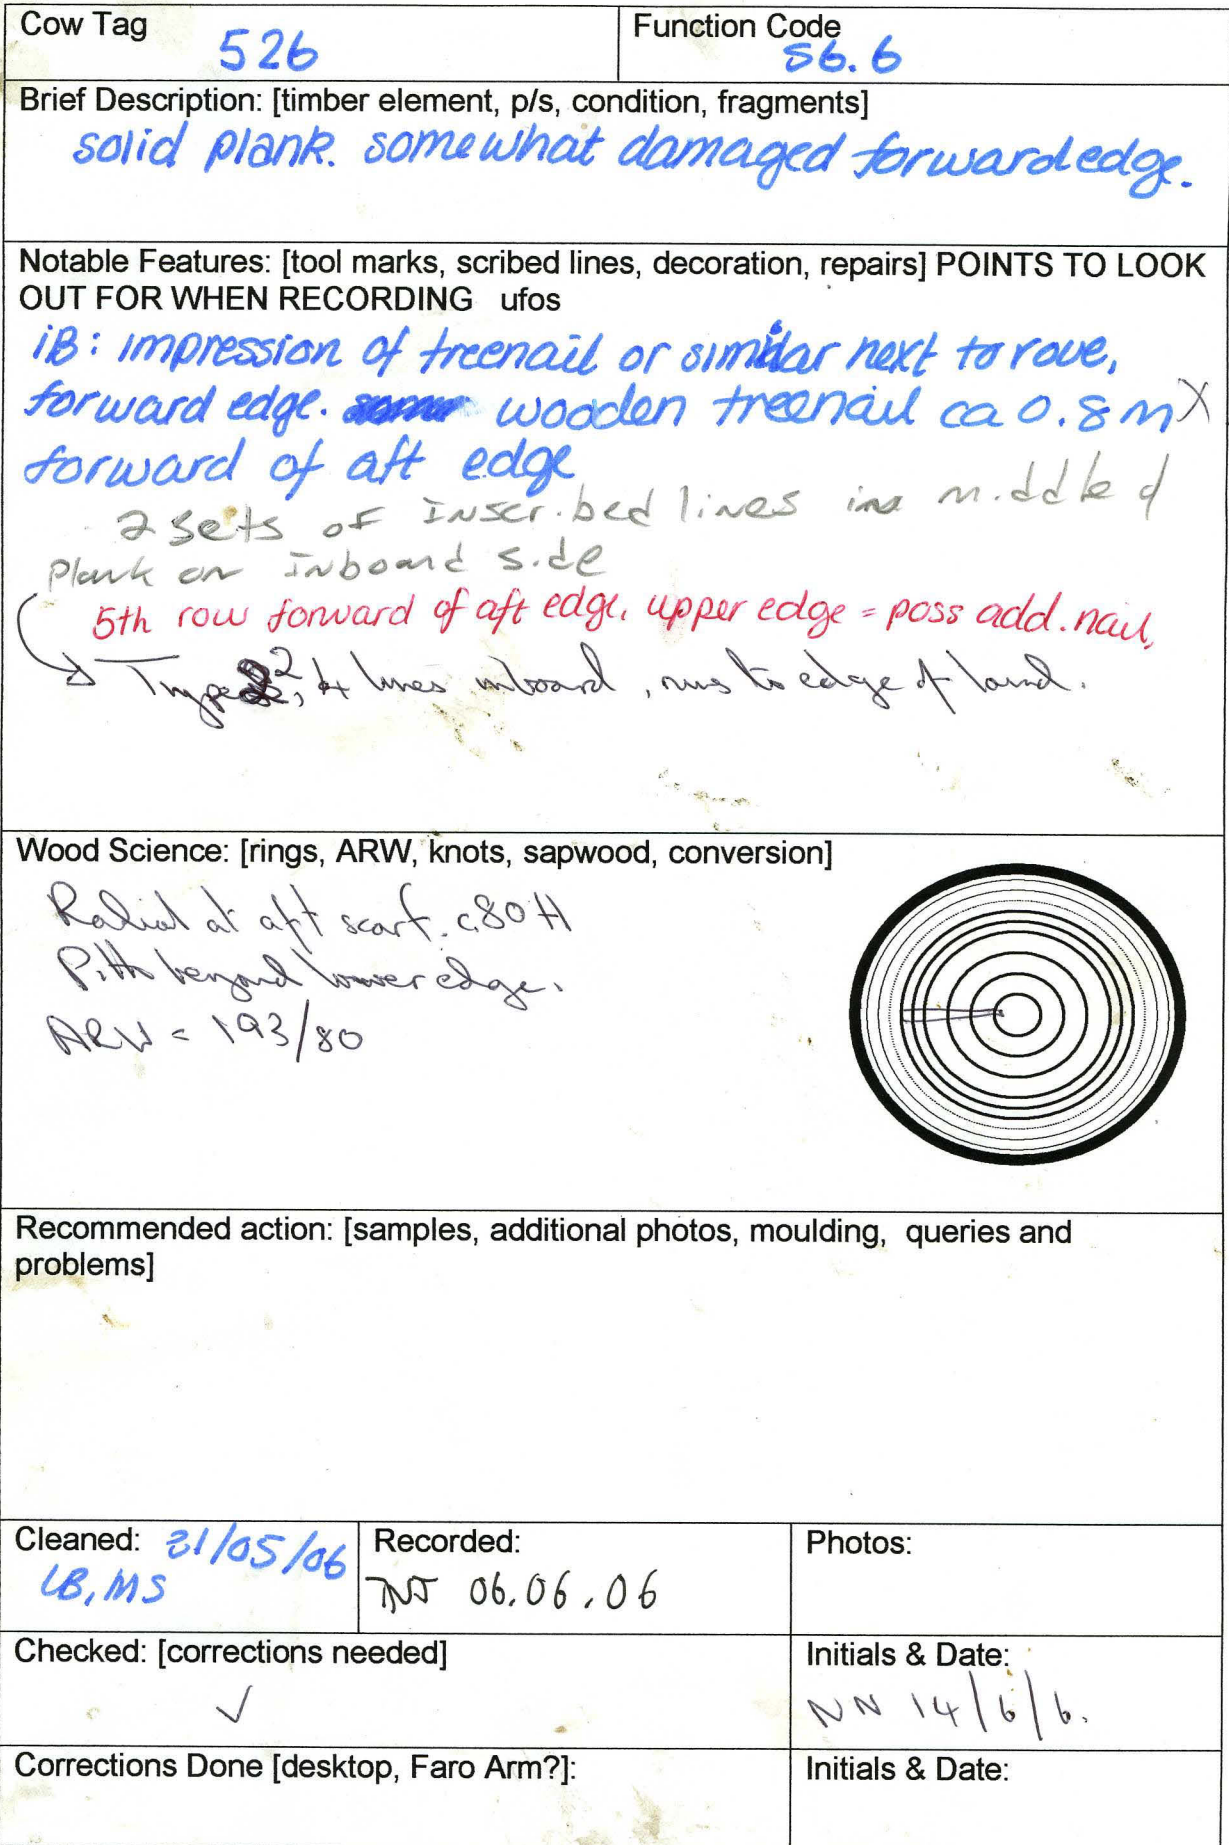 Cow Tag
526
Function Code
S6.6
Brief Description: [timber element, p/s, condition, fragments]
solid plank. somewhat damaged forward edge.
Notable Features: [tool marks, scribed lines, decoration, repairs] POINTS TO LOOK
OUT FOR WHEN RECORDING ufos
iB: impression of treenail or similar next to rove,
forward edge. wooden treenail ca 0.8m X
forward of aft edge
2 sets of Inscribed lines in middle of
Plank on Inboard side
5th row forward of aft edge, upper edge = poss add. nail.
Type 2, 4 lines inboard, runs to edge of land.
Wood Science: [rings, ARW, knots, sapwood, conversion]
Radial at aft scarf. c80 H
Pith beyond lower edge.
ARW = 193/80
Recommended action: [samples, additional photos, moulding, queries and
problems]
Cleaned: 31/05/06
LB, MS
Recorded:
06.06.06
Photos:
Checked: [corrections needed]
✓
Initials & Date:
NN 14/6/6.
Corrections Done [desktop, Faro Arm?]:
Initials & Date: